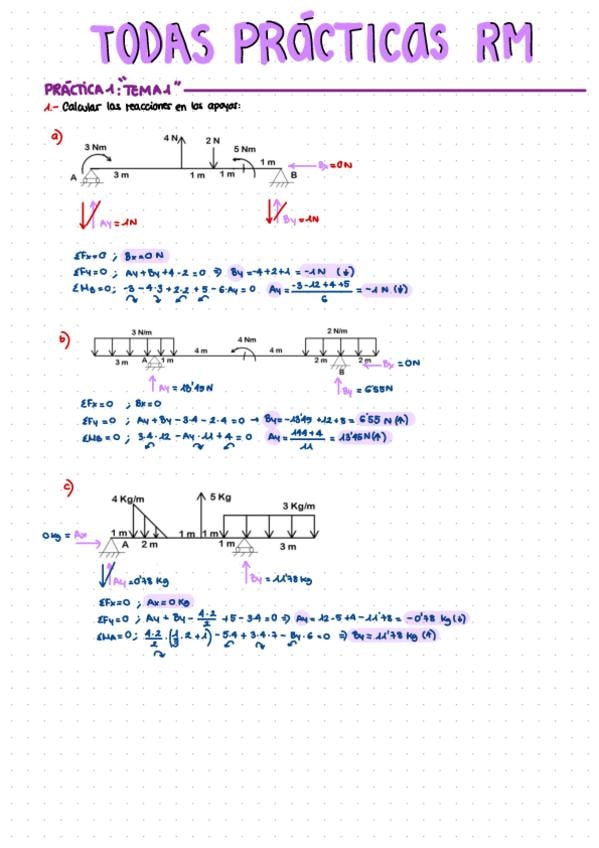 TODAS PRÁCTICAS RM
PRÁCTICA 1: "TEMA 1"
1.- Calcular las reacciones en los apoyos:
a)
3 Nm 4 N 2 N 5 Nm
A 3 m 1 m 1 m 1 m B Bx=0N
Ay=1N By=1N
ΣFx=0 ; Bx=0 N
ΣFy=0 ; Ay+By+4-2=0 ⇒ By=-4+2+1=-1 N (↓)
ΣMB=0; -3-4·3+2·2+5-6·Ay=0 Ay=(-3-12+4+5)/6=-1 N (↓)
b)
3 N/m 4 Nm 2 N/m
3 m A 1 m 4 m 4 m 2 m 2 m Bx =0N
B
Ay=13'45N By=6'55N
ΣFx=0 ; Bx=0
ΣFy=0 ; Ay+By-3·4-2·4=0 → By=-13'45+12+8=6'55 N(↑)
ΣMB=0; 3·4·12-Ay·11+4=0 Ay=(144+4)/11=13'45N(↑)
c)
4 Kg/m 5 Kg 3 Kg/m
0kg = Ax 1 m A 2 m 1 m 1 m 1 m 3 m
Ay=0'78 kg By=11'78 kg
ΣFx=0 ; Ax=0 kg
ΣFy=0; Ay+By-4·2/2+5-3·4=0 ⇒ Ay=12-5+4-11'78=-0'78 kg(↓)
ΣMA=0; 4·2/2·(1/3·2+1)-5·4+3·4·7-By·6=0 ⇒ By=11'78 kg (↑)